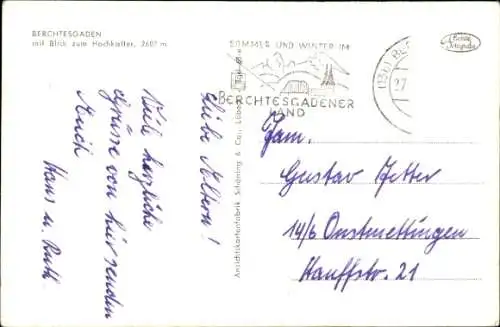 BERCHTESGADEN
mit Blick zum Hochkalter, 2607 m
SOMMER UND WINTER IM
BERCHTESGADENER
LAND
Echte
Fotografie
Liebe Altern!
Viele herzliche
Grüsse von hier senden
Euch
Hans u. Ruth
Ansichtskartenfabrik Schöning & Co., Lübeck
Fam.
Gustav Jetter
14/6 Onstmettingen
Hauffstr. 21